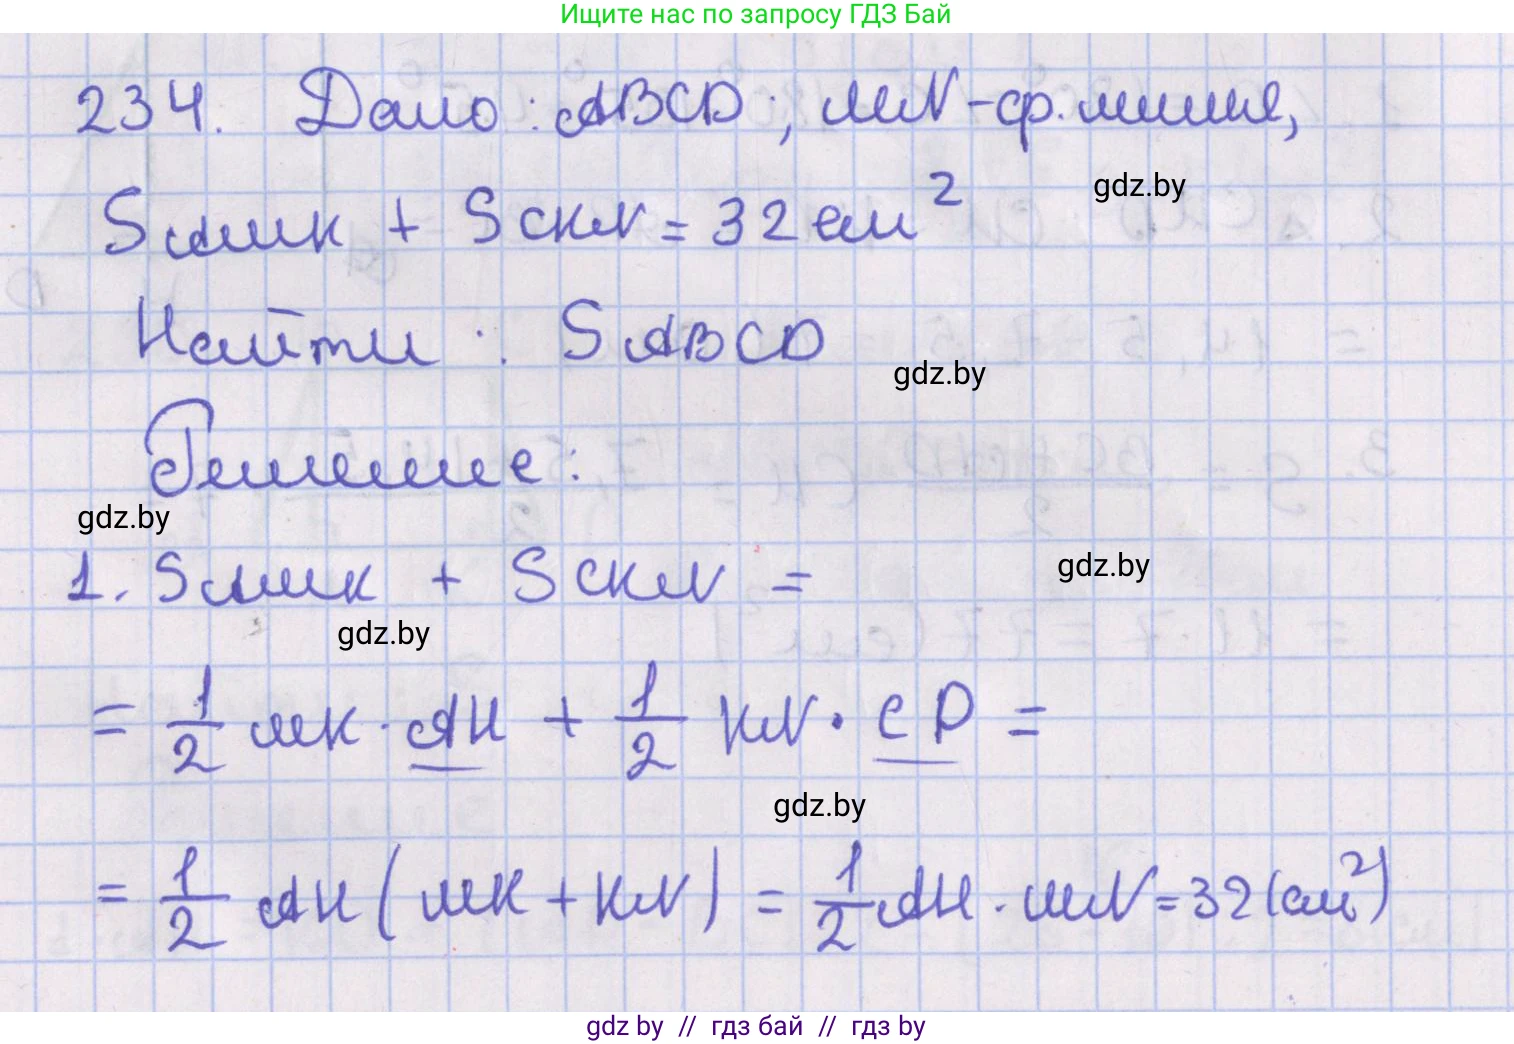 Ищите нас по запросу ГДЗ Бай
234. Дано: ABCD; MN-ср.линия,
gdz.by
SAMK + SCKN = 32 см²
Найти: SABCD
gdz.by
Решение:
gdz.by
gdz.by
1. SAMK + SCKN =
gdz.by
= 1/2 MK · AH + 1/2 KN · CD =
gdz.by
= 1/2 AH (MK + KN) = 1/2 AH · MN = 32 (см²)
gdz by // гдз бай // гдз by